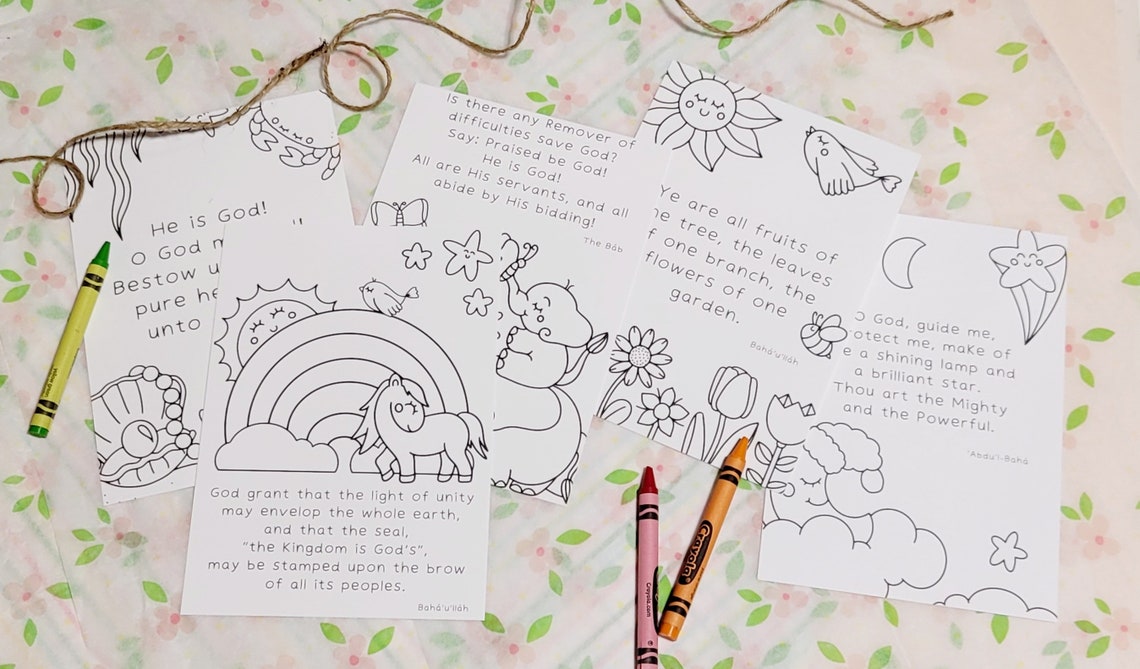 He is God!
O God m
Bestow u
pure he
unto
Is there any Remover of
difficulties save God?
Say: Praised be God!
He is God!
All are His servants, and all
abide by His bidding!
The Báb
Ye are all fruits of
ne tree, the leaves
f one branch, the
flowers of one
garden.
Bahá'u'lláh
O God, guide me,
rotect me, make of
e a shining lamp and
a brilliant star.
Thou art the Mighty
and the Powerful.
'Abdu'l-Bahá
God grant that the light of unity
may envelop the whole earth,
and that the seal,
"the Kingdom is God's",
may be stamped upon the brow
of all its peoples.
Bahá'u'lláh
yellow green
Crayola
Crayola.com